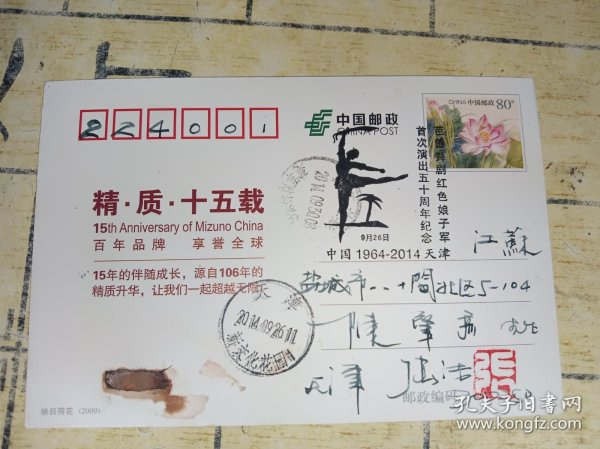 224001
中国邮政
CHINA POST
中国邮政 80分
精·质·十五载
15th Anniversary of Mizuno China
百年品牌 享誉全球
15年的伴随成长，源自106年的
精质升华，让我们一起超越无限！
芭蕾舞剧红色娘子军
首次演出五十周年纪念
9月26日
中国 1964-2014 天津
2014.09.30
江蘇
盐城市
5-104
天津
2014.09.26.11
天津
邮政编码
映日荷花 (2009)
孔夫子旧书网